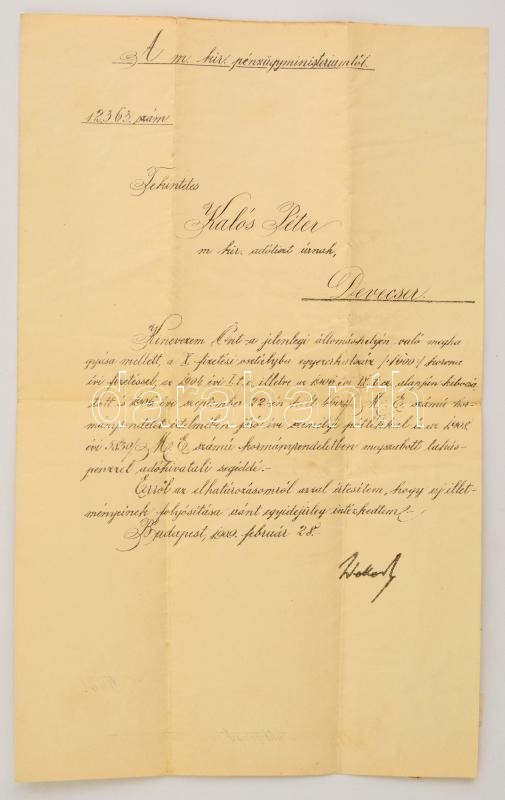 A m. kir. pénzügyministeriumtól.
12363. szám
Tekintetes
Kalós Péter
m. kir. adótiszt úrnak,
Devecser.
Kinevezem Önt a jelenlegi állomáshelyén való megha-
gyása mellett a X. fizetési osztályba korona
évi fizetéssel, az 1904 évi I. t. c. illetve az alapján kibocsá-
tott s 1904 évi september 22-én M. E. számú kor-
mányrendelet értelmében évi személyi pótlékkal s az 1908.
évi M. E. számú kormányrendeletben megszabott lakás-
pénzzel adóhivatali segéddé.-
Erről az elhatározásomról azzal értesítem, hogy uj illet-
ményeinek folyósítása iránt egyidejűleg intézkedtem.-
Budapest, 1909. február 28.-
darabanth